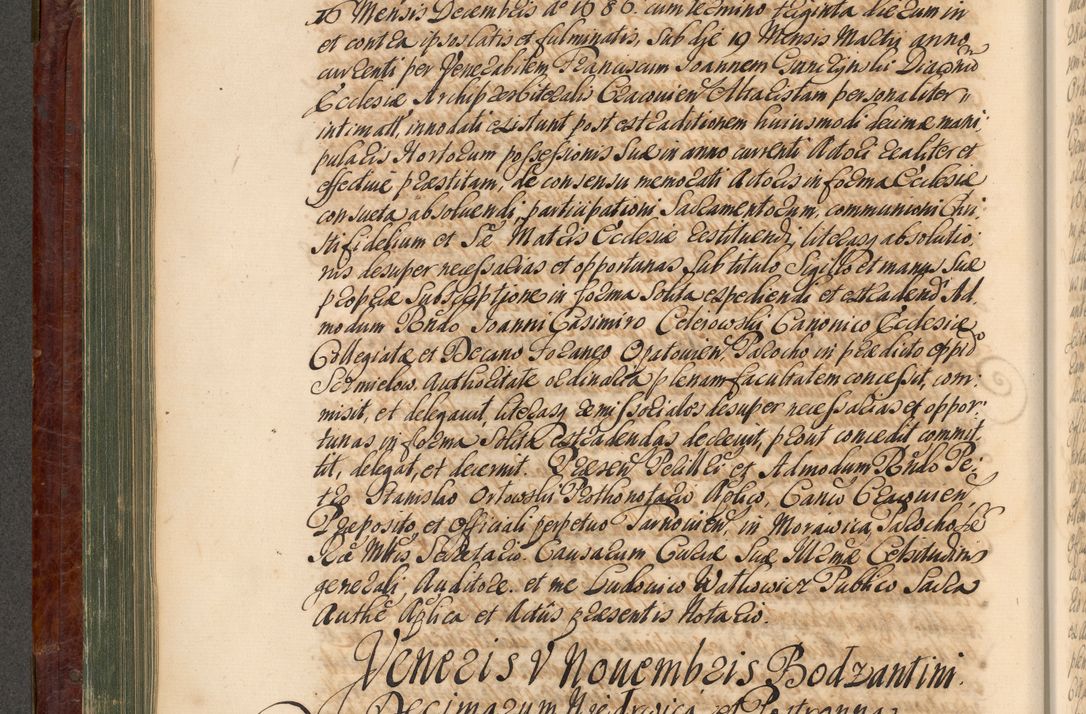 16 Mensis Decembris Aº 1686. cum termino triginta dierum in
et contra ipsos latis et fulminatis, sub die 19 Mensis Martij anno
currenti per Venerabilem Franciscum Joannem Gunczynski Diaconũ
Ecclesiæ Archipræsbiteralis Cracovien Altaristam personaliter
intimatt, innodati existunt post extraditionem huiusmodi decimæ mani
pularis Hortorum possessionis Suæ in anno currenti Actori realiter et
effective præstitam, de consensu memorati Actoris in forma Ecclesiæ
consueta absolvendi, participationi Sacramentorum, communioni Chri
stifidelium et Sæ Matris Ecclesiæ restituendi, literasq absolutio:
nis desuper necessarias et opportunas sub titulo, Sigillo et manus Suæ
propriæ Subscriptione in forma Solita expediendi et extradendi Ad
modum Rñdo Joanni Casimiro Celerowski Canonico Ecclesiæ
Collegiatæ et Decano Foraneo Opatovien Parocho in prædicto oppido
Sermielow. Authoritate ordinaria plenam facultatem concessit, com
misit, et delegavit, literasq remissoriales desuper necessarias et oppor:
tunas in forma Solita extradendas decrevit, prout concedit commit
tit, delegat, et decernit. Præsen Perilli et Admodum Rñdo Pe:
tro Stanislao Orlowski Prothonotario Aplico, Canco Cracovien,
Præposito et Officiali perpetuo Tarnovien, in Morawica, Parocho, Sæ
Ræ Mttis Secretario Causarum Curiæ Suæ Illmæ Celsitudinis
generali Auditore. et me Ludovico Watlowicz Publico Sacra
Authẽ Aplica et Actũs præsentis Notario.
Veneris V Novembris Bodzantini.
Decimarum Niedzwica et Postronna